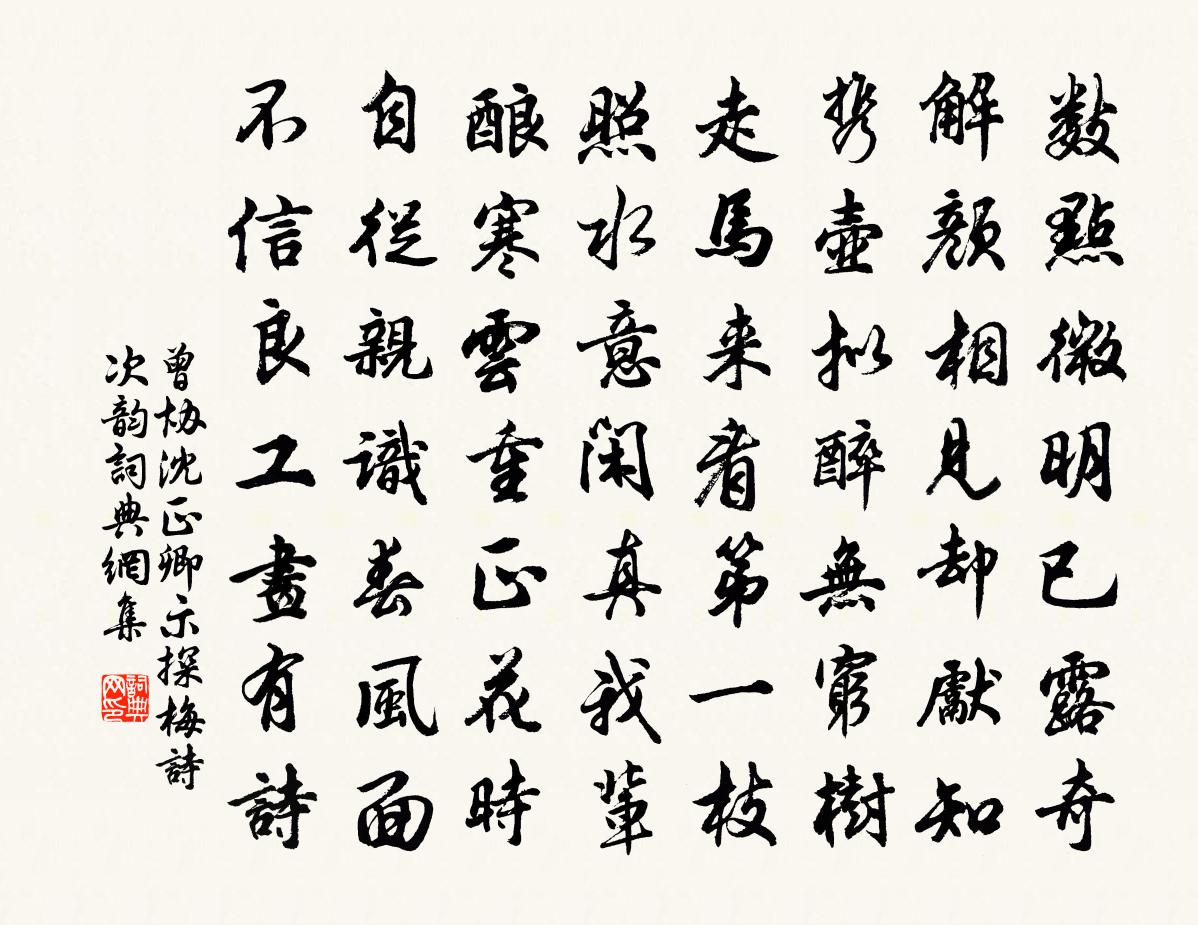 數點微明已露奇
解顏相見却獻知
携壺拟醉無窮樹
走馬来看第一枝
照水意閑真我輩
酿寒雲重正花時
自從親識春風面
不信良工畫有詩
曾协沈正卿示探梅詩
次韵詞典網集
詞典网印